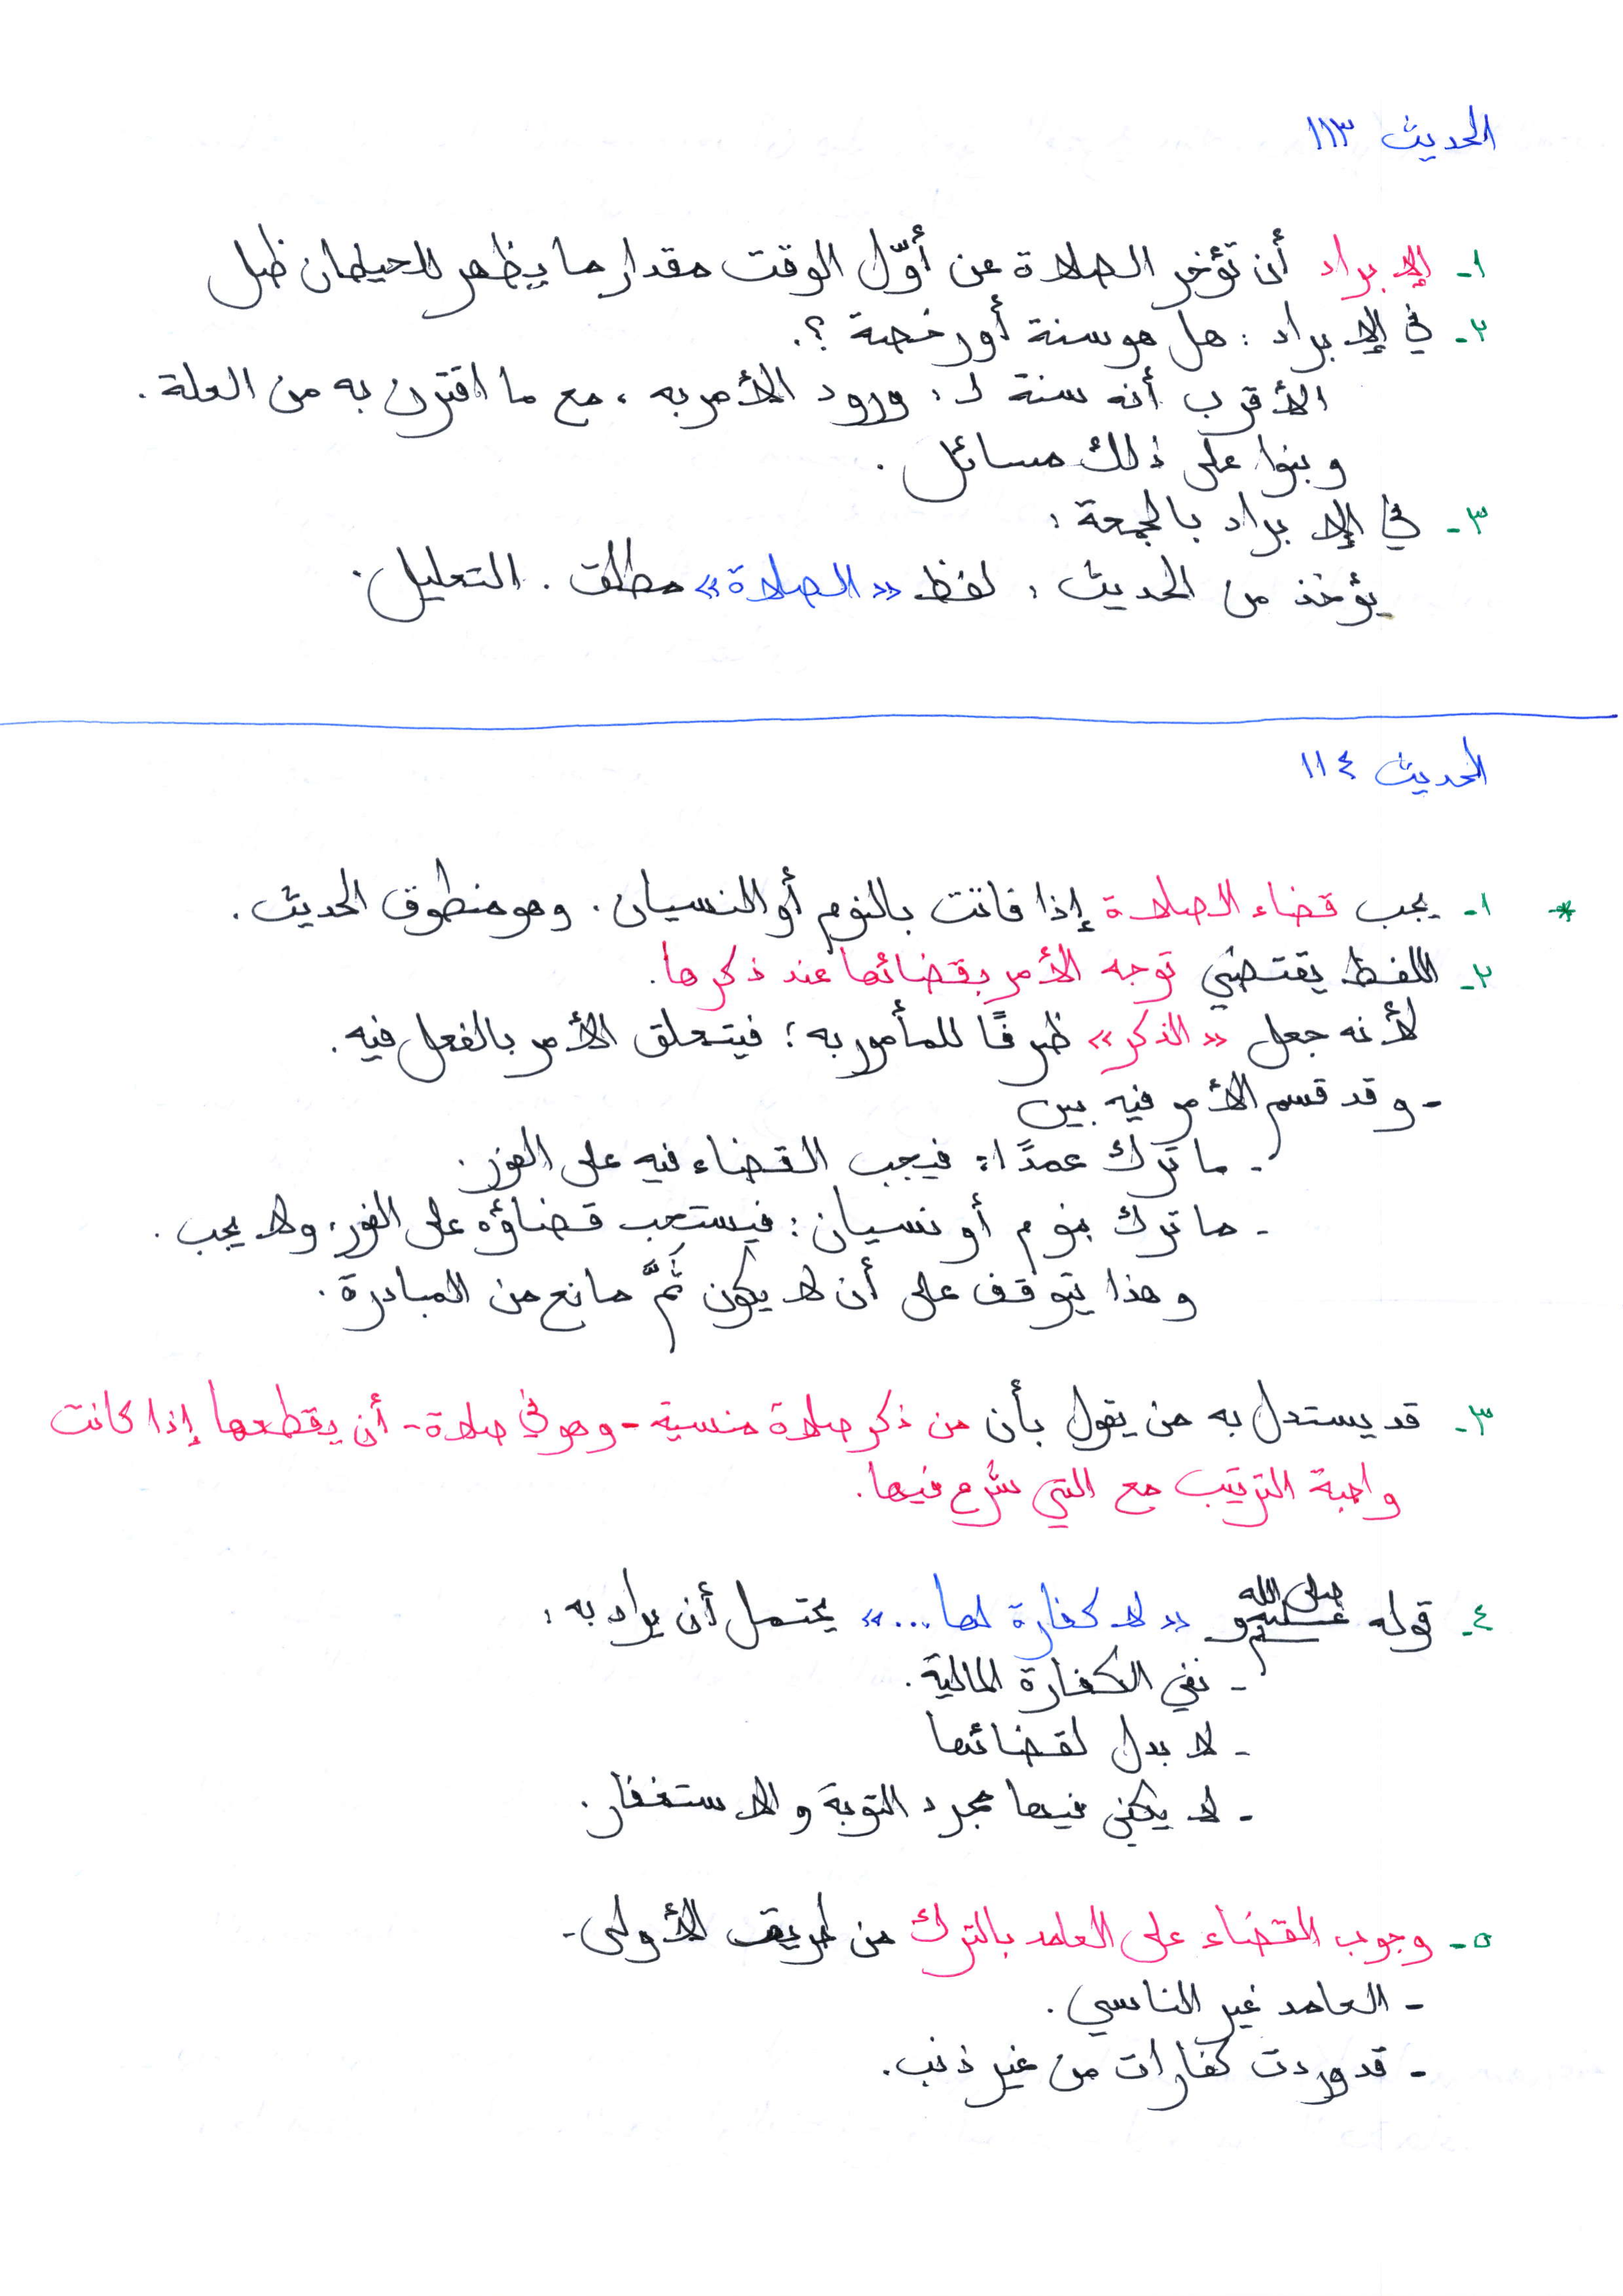 الحديث ١١٣
١- الإبراد أن تؤخر الصلاة عن أوّل الوقت مقدار ما يظهر للحيطان ظل
٢- في الإبراد : هل هو سنة أو رخصة ؟.
الأقرب أنه سنة لـ: ورود الأمر به ، مع ما اقترن به من العلة .
وبنوا على ذلك مسائل .
٣- في الإبراد بالجمعة :
يؤخذ من الحديث : لفظ «الصلاة» مطلق . التعليل .
الحديث ١١٤
* ١- يجب قضاء الصلاة إذا فاتت بالنوم أو النسيان . وهو منطوق الحديث .
٢- اللفظ يقتضي توجه الأمر بقضائها عند ذكرها .
لأنه جعل «الذكر» ظرفًا للمأمور به ؛ فيتعلق الأمر بالفعل فيه .
- وقد قسم الأمر فيه بين
- ما ترك عمدًا : فيجب القضاء فيه على الفور .
- ما ترك بنوم أو نسيان : فيستحب قضاؤه على الفور ، ولا يجب .
وهذا يتوقف على أن لا يكون ثَمَّ مانع من المبادرة .
٣- قد يستدل به من يقول بأن من ذكر صلاة منسية - وهو في صلاة - أن يقطعها إذا كانت
واجبة الترتيب مع التي شرع فيها .
٤- قوله صلى الله عليه وسلم «لا كفارة لها ...» يحتمل أن يراد به :
- نفي الكفارة المالية .
- لا بدل لقضائها
- لا يكفي فيها مجرد التوبة والاستغفار .
٥- وجوب القضاء على العامد بالترك من طريق الأولى -
- العامد غير الناسي .
- قد وردت كفارات من غير ذنب .